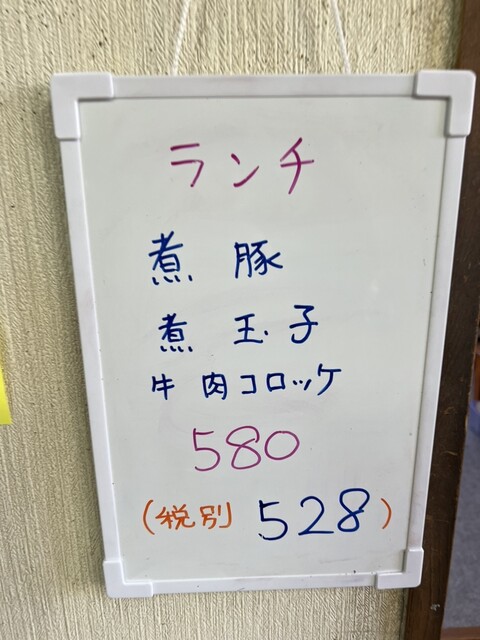 ランチ
煮豚
煮玉子
牛肉コロッケ
580
(税別 528)